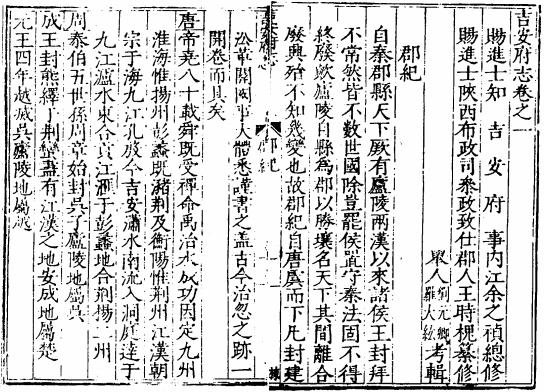 吉安府志卷之一
賜進士知 吉 安 府 事內江余之禎總修
賜進士陝西布政司叅政致仕郡人王時槐纂修
舉人劉元卿
羅大紘考輯
郡紀
自秦郡縣天下厥有廬陵兩漢以來諸侯王封拜
不常然皆不數世國除豈罷侯置守秦法固不得
終廢歟廬陵自縣為郡以勝壤名天下其間離合
廢興殆不知幾變也故郡紀自唐虞而下凡封建
吉安府志
郡紀
㳂革關國事大體悉謹書之蓋古今治忽之跡一
開卷而具矣
唐帝堯八十載舜既受禪命禹治水成功因定九州
淮海惟揚州彭蠡既瀦荆及衡陽惟荆州江漢朝
宗于海九江孔殷今吉安瀟水南流入洞庭達于
九江廬水東合貢江滙于彭蠡地合荆揚二州
周泰伯五世孫周章始封吳子廬陵地屬吳
成王封熊繹于荆蠻蠶有江漢之地安成地屬楚
元王四年越滅吳廬陵地屬越